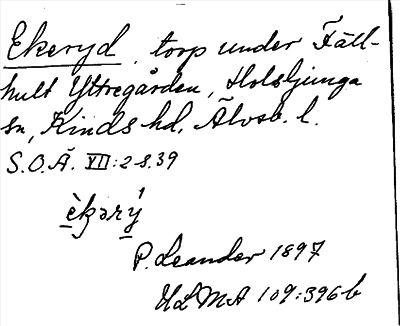 Ekeryd, torp under Fäll-
hult Yttregården, Holsljunga
sn, Kinds hd, Älvsb. l.
S.O.Ä. VII:2 s. 39
èkərý
P. Leander 1897
ULMA 109:396b